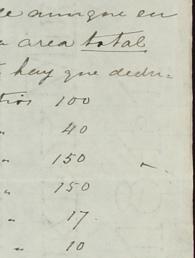 aunque en
area total
hay que dedu-
100
" 40
" 150
" 150
" 17.
" 10